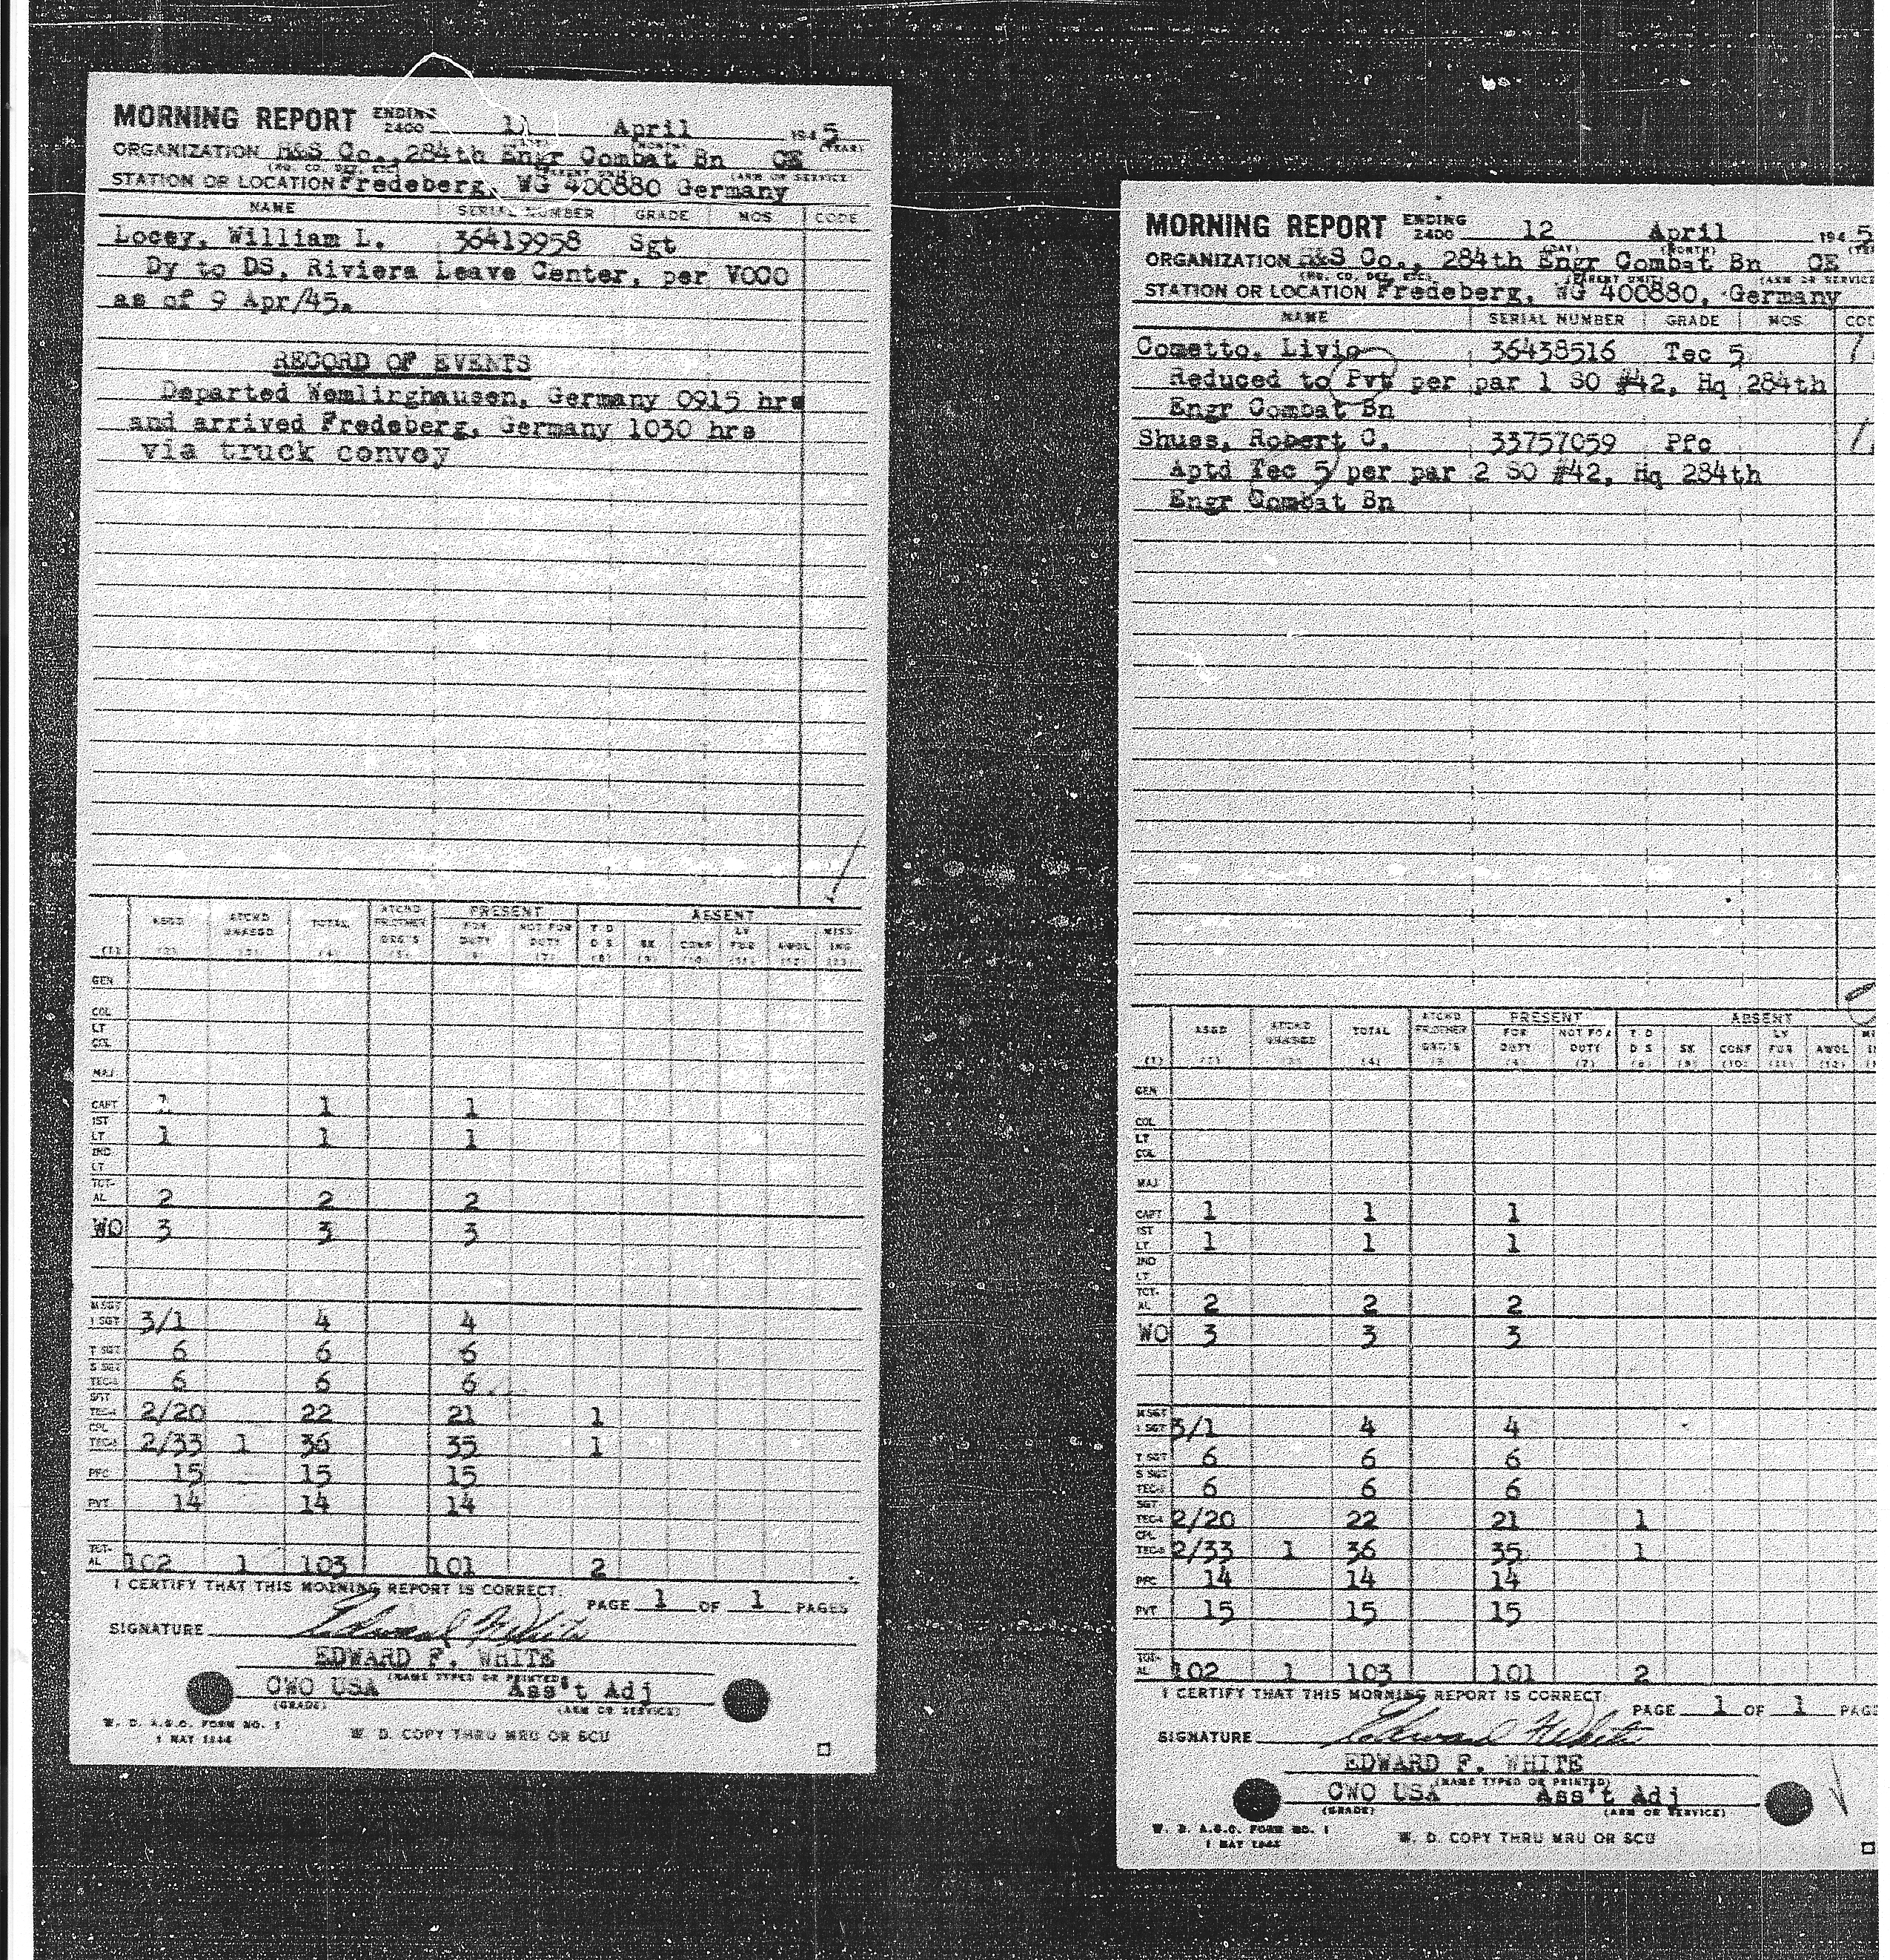 MORNING REPORT ENDING 2400 11 April 1945
(DAY) (MONTH) (YEAR)
ORGANIZATION H&S Co., 284th Engr Combat Bn CE
(HQ. CO. DET. ETC.) (PARENT UNIT) (ARM OR SERVICE
STATION OR LOCATION Fredeberg, WG 400880 Germany
NAME SERIAL NUMBER GRADE MOS CODE
Locey, William L. 36419958 Sgt
Dy to DS, Riviera Leave Center, per VOCO
as of 9 Apr/45.
RECORD OF EVENTS
Departed Wemlinghausen, Germany 0915 hrs
and arrived Fredeberg, Germany 1030 hrs
via truck convoy
PRESENT ABSENT
ASGD ATCHD UNASGD TOTAL ATCHD FR OTHER ORG'S FOR DUTY NOT FOR DUTY T D D S SK CONF LV FUR AWOL MISS ING
(1) (2) (3) (4) (5) (6) (7) (8) (9) (10) (11) (12) (13)
GEN
COL
LT COL
MAJ
CAPT 1 1 1
1ST LT 1 1 1
2ND LT
TOT-AL 2 2 2
WO 3 3 3
M SGT 1 SGT 3/1 4 4
T SGT 6 6 6
S SGT TEC-3 6 6 6
SGT TEC-4 2/20 22 21 1
CPL TEC-5 2/33 1 36 35 1
PFC 15 15 15
PVT 14 14 14
TOT-AL 102 1 103 101 2
I CERTIFY THAT THIS MORNING REPORT IS CORRECT.
PAGE 1 OF 1 PAGES
SIGNATURE Edward F. White
EDWARD F. WHITE
(NAME TYPED OR PRINTED)
CWO USA Ass't Adj
(GRADE) (ARM OR SERVICE)
W. D. A.G.O. FORM NO. 1
1 MAY 1944
W. D. COPY THRU MRU OR SCU
MORNING REPORT ENDING 2400 12 April 1945
(DAY) (MONTH)
ORGANIZATION H&S Co., 284th Engr Combat Bn CE
(HQ. CO. DET. ETC.) (PARENT UNIT) (ARM OR SERVICE
STATION OR LOCATION Fredeberg, WG 400880, Germany
NAME SERIAL NUMBER GRADE MOS
Cometto, Livio 36438516 Tec 5
Reduced to Pvt per par 1 SO #42, Hq 284th
Engr Combat Bn
Shuss, Robert C. 33757059 Pfc
Aptd Tec 5 per par 2 SO #42, Hq 284th
Engr Combat Bn
PRESENT ABSENT
ASGD ATCHD UNASGD TOTAL ATCHD FR OTHER ORG'S FOR DUTY NOT FOR DUTY T D D S SK CONF LV FUR AWOL
(1) (2) (3) (4) (5) (6) (7) (8) (9) (10) (11) (12)
GEN
COL
LT COL
MAJ
CAPT 1 1 1
1ST LT 1 1 1
2ND LT
TOT-AL 2 2 2
WO 3 3 3
M SGT 1 SGT 3/1 4 4
T SGT 6 6 6
S SGT TEC-3 6 6 6
SGT TEC-4 2/20 22 21 1
CPL TEC-5 2/33 1 36 35 1
PFC 14 14 14
PVT 15 15 15
TOT-AL 102 1 103 101 2
I CERTIFY THAT THIS MORNING REPORT IS CORRECT.
PAGE 1 OF 1
SIGNATURE Edward F. White
EDWARD F. WHITE
(NAME TYPED OR PRINTED)
CWO USA Ass't Adj
(GRADE) (ARM OR SERVICE)
W. D. A.G.O. FORM NO. 1
1 MAY 1944
W. D. COPY THRU MRU OR SCU